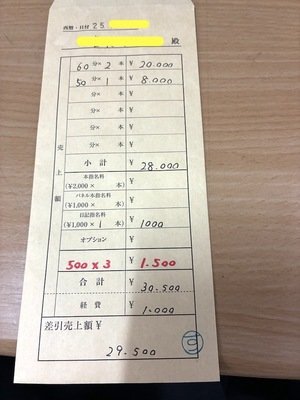 西暦・日付 25
殿
60分× 2 本 ¥ 20.000
50分× 1 本 ¥ 8.000
分× 本 ¥
分× 本 ¥
分× 本 ¥
売上額
小計 ¥ 28.000
本指名料
(¥2,000× 本) ¥
パネル本指名料
(¥1,000× 本) ¥
日記指名料
(¥1000× 1 本) ¥ 1000
オプション ¥
500×3 ¥ 1.500
合計 ¥ 30.500
経費 ¥ 1.000
差引売上額¥
29.500